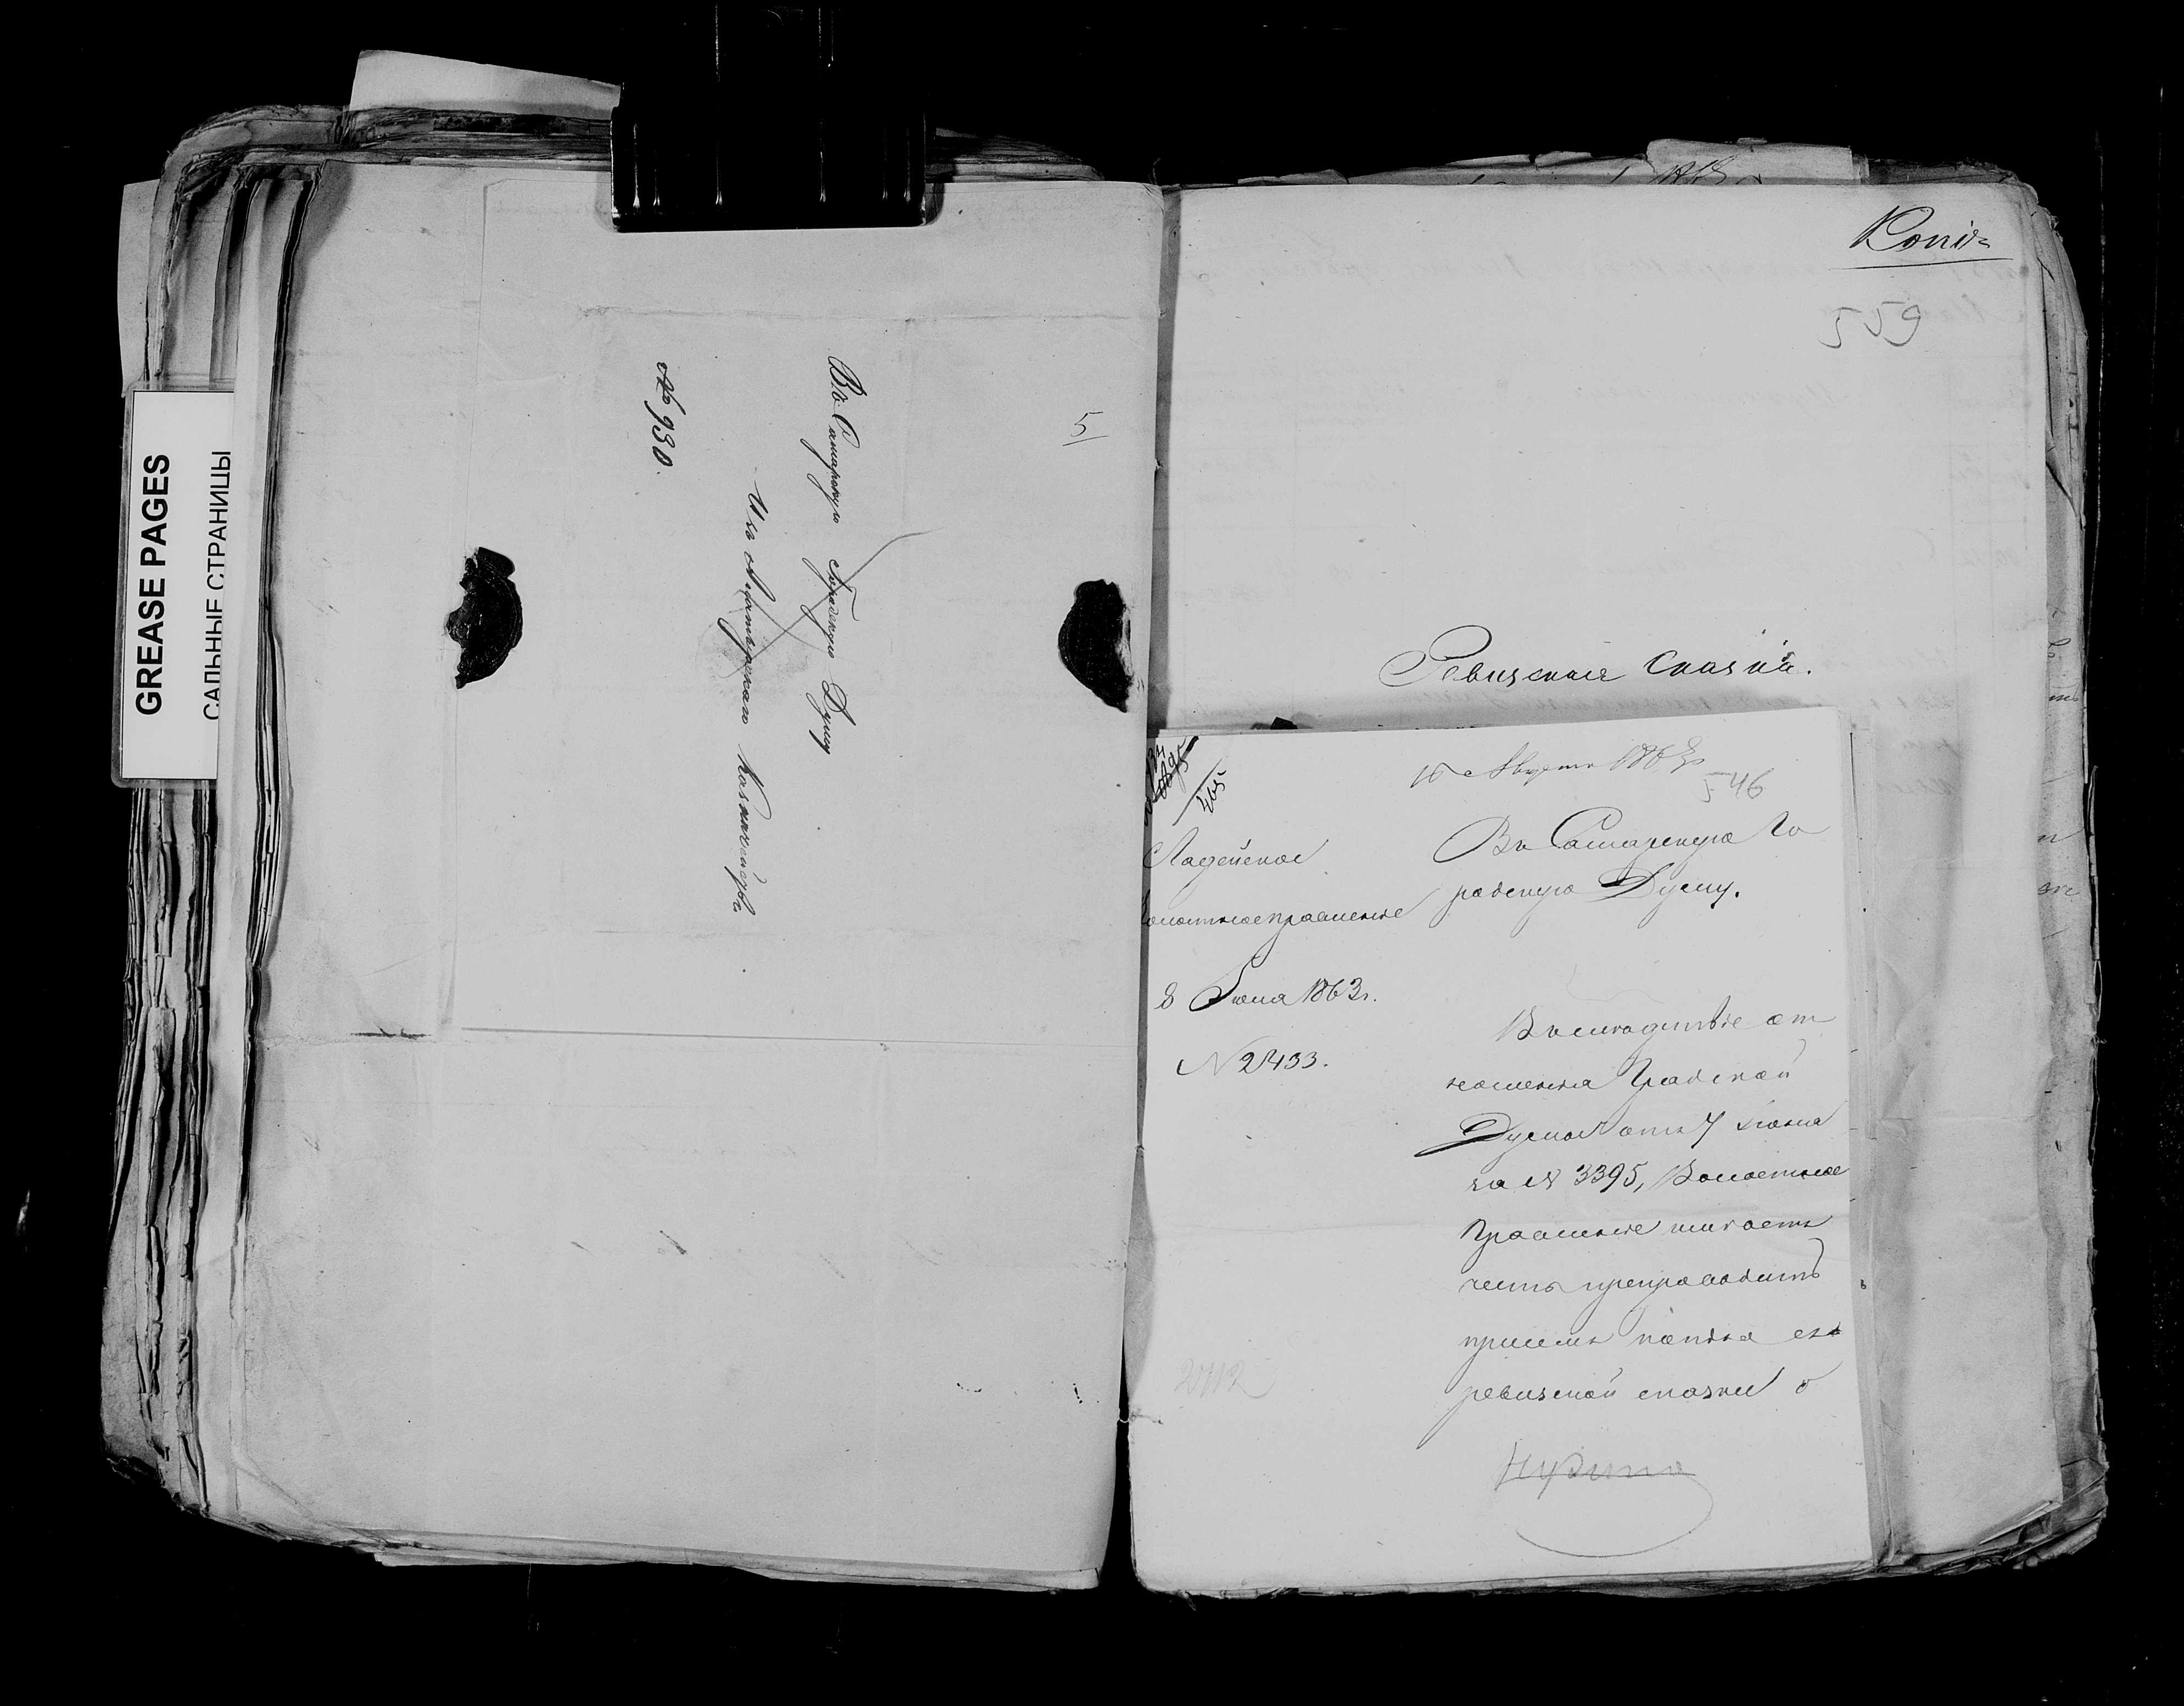 GREASE PAGES
САЛЬНЫЕ СТРАНИЦЫ
5
Въ Самарскую Городскую Думу
Изъ Алатырскаго Казначейства.
№ 930.
Копія
559
Ревизская Сказка.
465
10 Августа 1863
546
Ладейское
Волостное правленіе
8 Іюня 1863 г.
N 2433.
2712
Въ Самарскую Го
родскую Думу.
Въ следствіе от
ношенія Градской
Думы отъ 7 Іюня
за № 3395, Волостное
Правленіе имѣетъ
честь препроводить
присемъ копію съ
ревизской сказки о